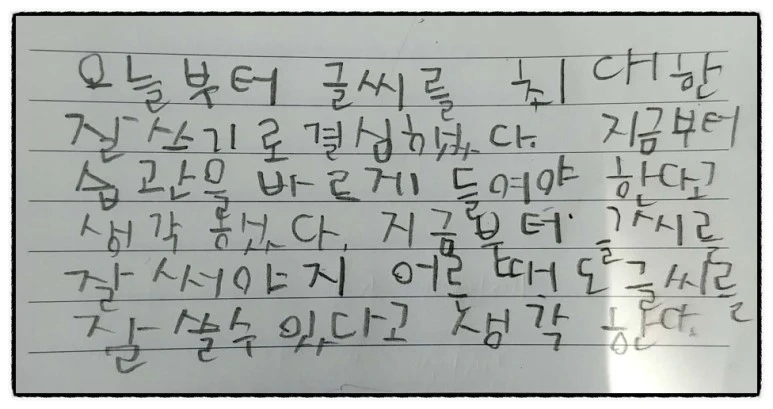 오늘부터 글씨를 최대한
잘 쓰기로 결심했다. 지금부터
습관을 바르게 들여야 한다고
생각 했다. 지금부터 글씨를
잘 써야지 어른 때도 글씨를
잘 쓸수 있다고 생각 한다.